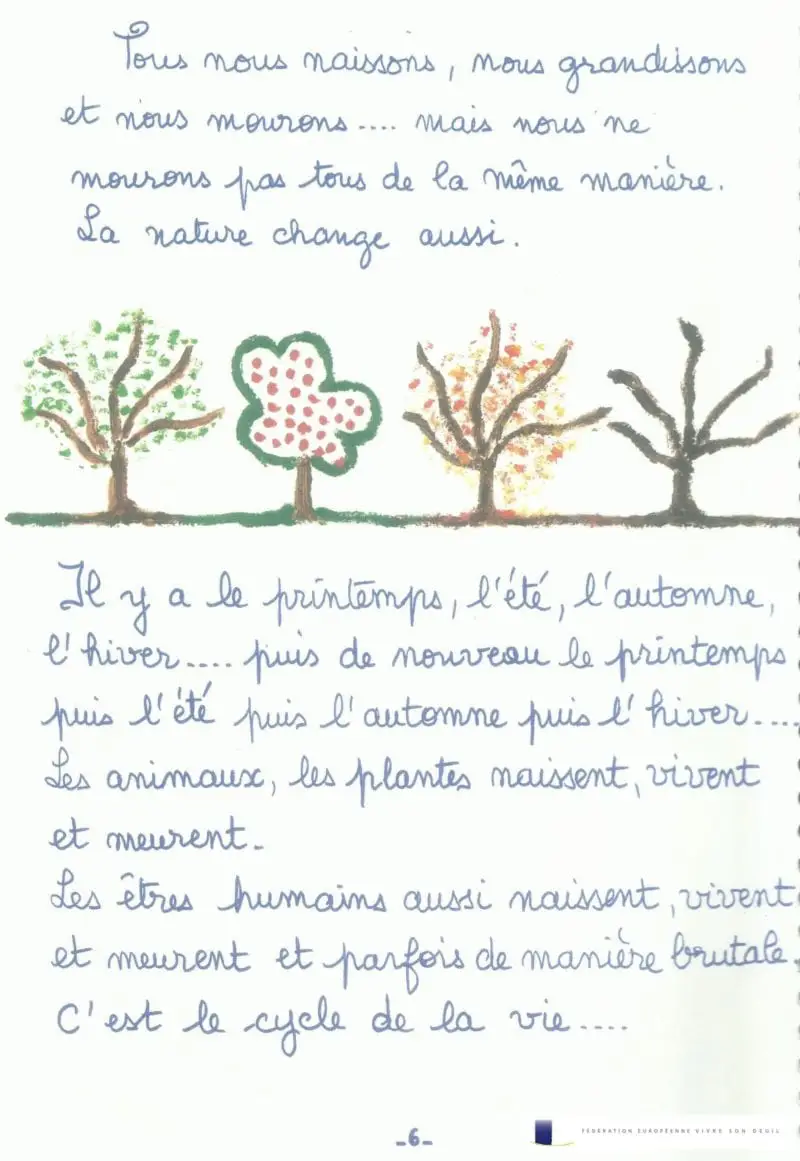 Tous nous naissons, nous grandissons
et nous mourons.... mais nous ne
mourons pas tous de la même manière.
La nature change aussi.
Il y a le printemps, l'été, l'automne,
l'hiver.... puis de nouveau le printemps
puis l'été puis l'automne puis l'hiver....
Les animaux, les plantes naissent, vivent
et meurent.
Les êtres humains aussi naissent, vivent
et meurent et parfois de manière brutale.
C'est le cycle de la vie....
-6-
FÉDÉRATION EUROPÉENNE VIVRE SON DEUIL